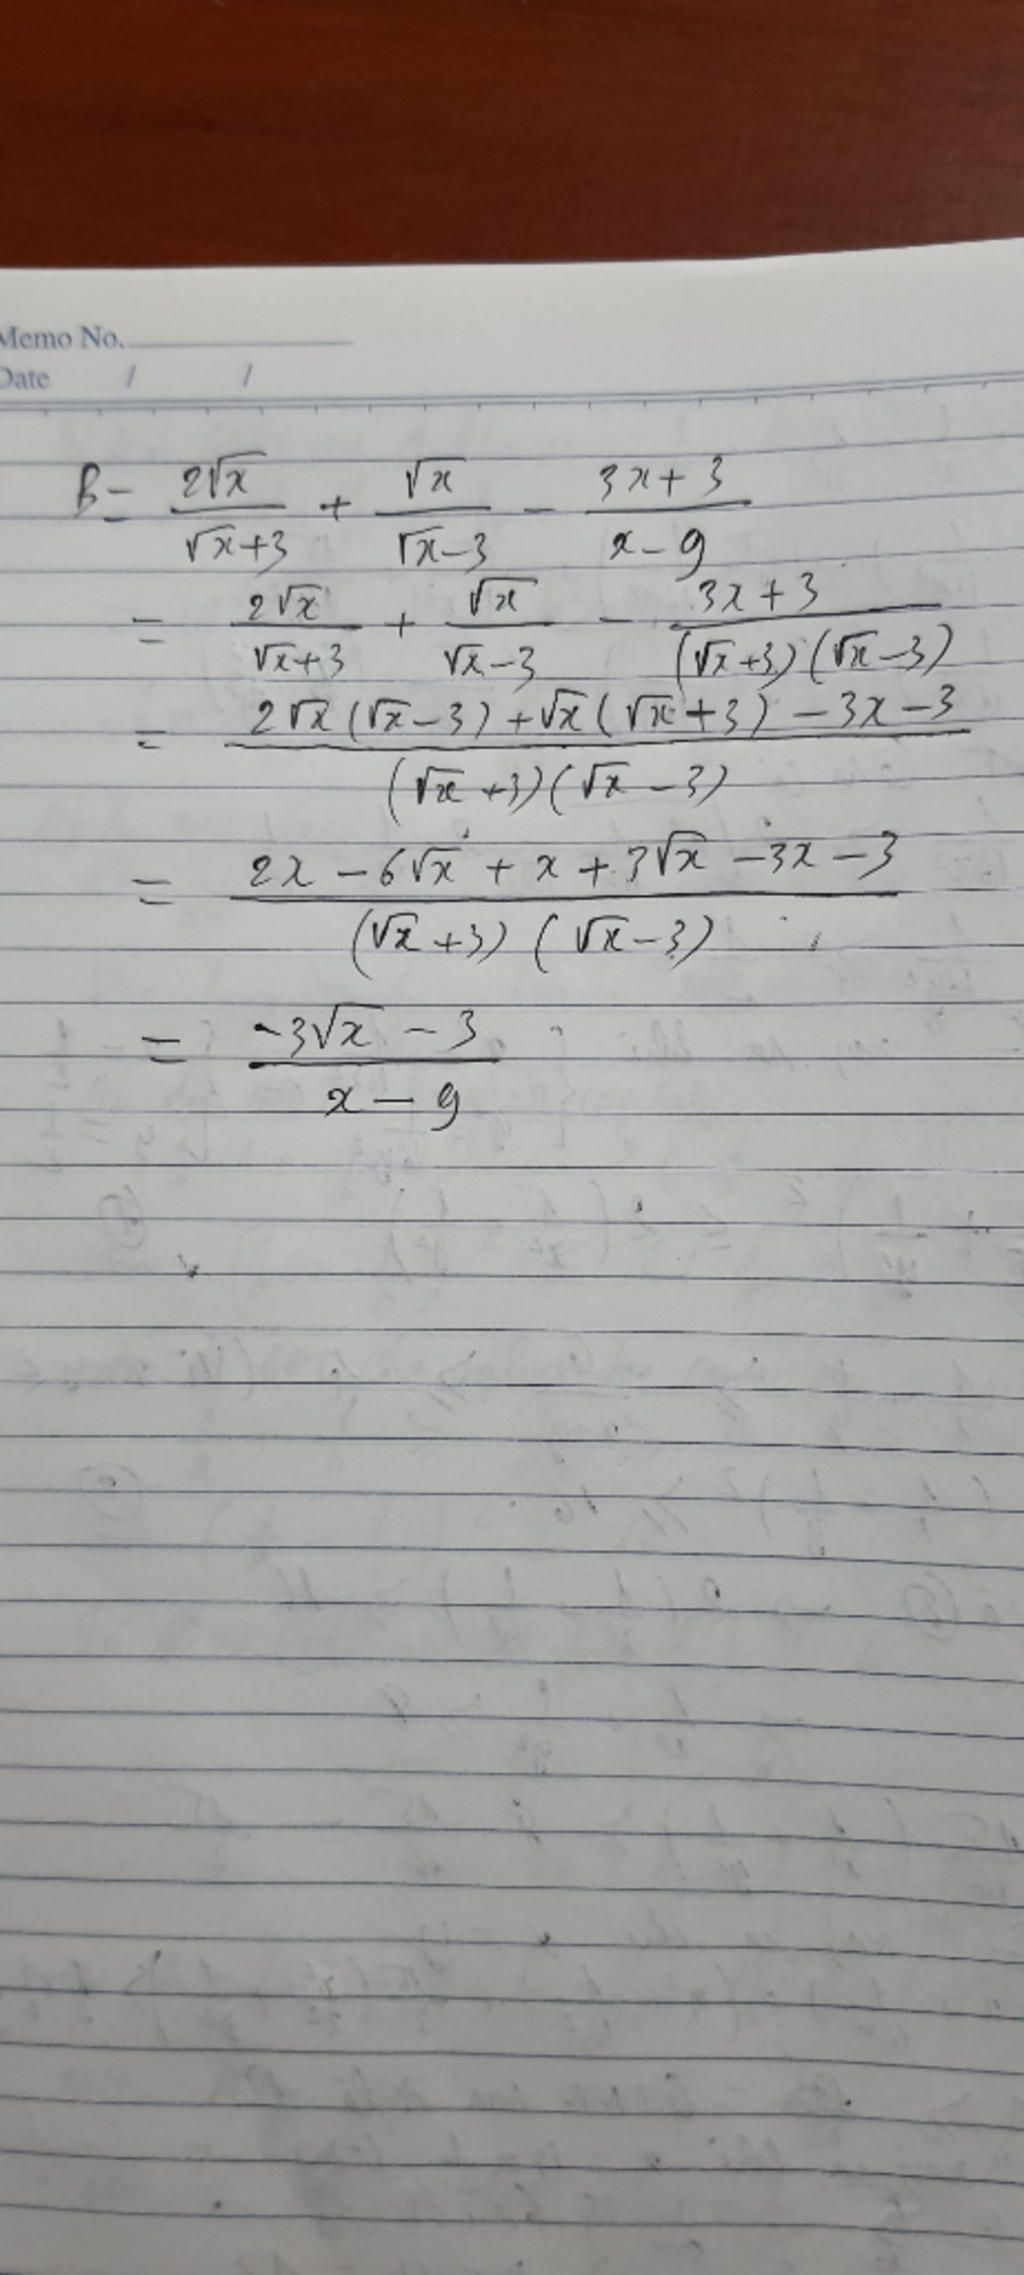 Memo No.
Date / /
B = \frac{2\sqrt{x}}{\sqrt{x}+3} + \frac{\sqrt{x}}{\sqrt{x}-3} - \frac{3x+3}{x-9}
= \frac{2\sqrt{x}}{\sqrt{x}+3} + \frac{\sqrt{x}}{\sqrt{x}-3} - \frac{3x+3}{(\sqrt{x}+3)(\sqrt{x}-3)}
= \frac{2\sqrt{x}(\sqrt{x}-3)+\sqrt{x}(\sqrt{x}+3)-3x-3}{(\sqrt{x}+3)(\sqrt{x}-3)}
= \frac{2x-6\sqrt{x}+x+3\sqrt{x}-3x-3}{(\sqrt{x}+3)(\sqrt{x}-3)}
= \frac{-3\sqrt{x}-3}{x-9}